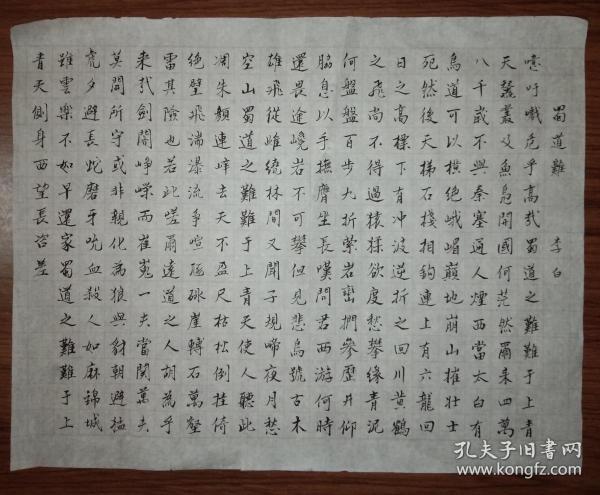 蜀道難 李白
噫吁嚱危乎高哉蜀道之難難于上青
天蠶叢及魚鳧開國何茫然爾來四萬
八千歲不與秦塞通人煙西當太白有
鳥道可以橫絕峨嵋巔地崩山摧壯士
死然後天梯石棧相鉤連上有六龍回
日之高標下有冲波逆折之回川黃鶴
之飛尚不得過猿猱欲度愁攀緣青泥
何盤盤百步九折縈岩巒捫參歷井仰
脇息以手撫膺坐長嘆問君西游何時
還畏途巉岩不可攀但見悲鳥號古木
雄飛從雌繞林間又聞子規啼夜月愁
空山蜀道之難難于上青天使人聽此
凋朱顏連峰去天不盈尺枯松倒挂倚
絕壁飛湍瀑流爭喧豗砯崖轉石萬壑
雷其險也若此嗟爾遠道之人胡為乎
來哉劍閣崢嶸而崔嵬一夫當關萬夫
莫開所守或非親化為狼與豺朝避猛
虎夕避長蛇磨牙吮血殺人如麻錦城
雖雲樂不如早還家蜀道之難難于上
青天側身西望長咨嗟
孔夫子旧书网
www.kongfz.com